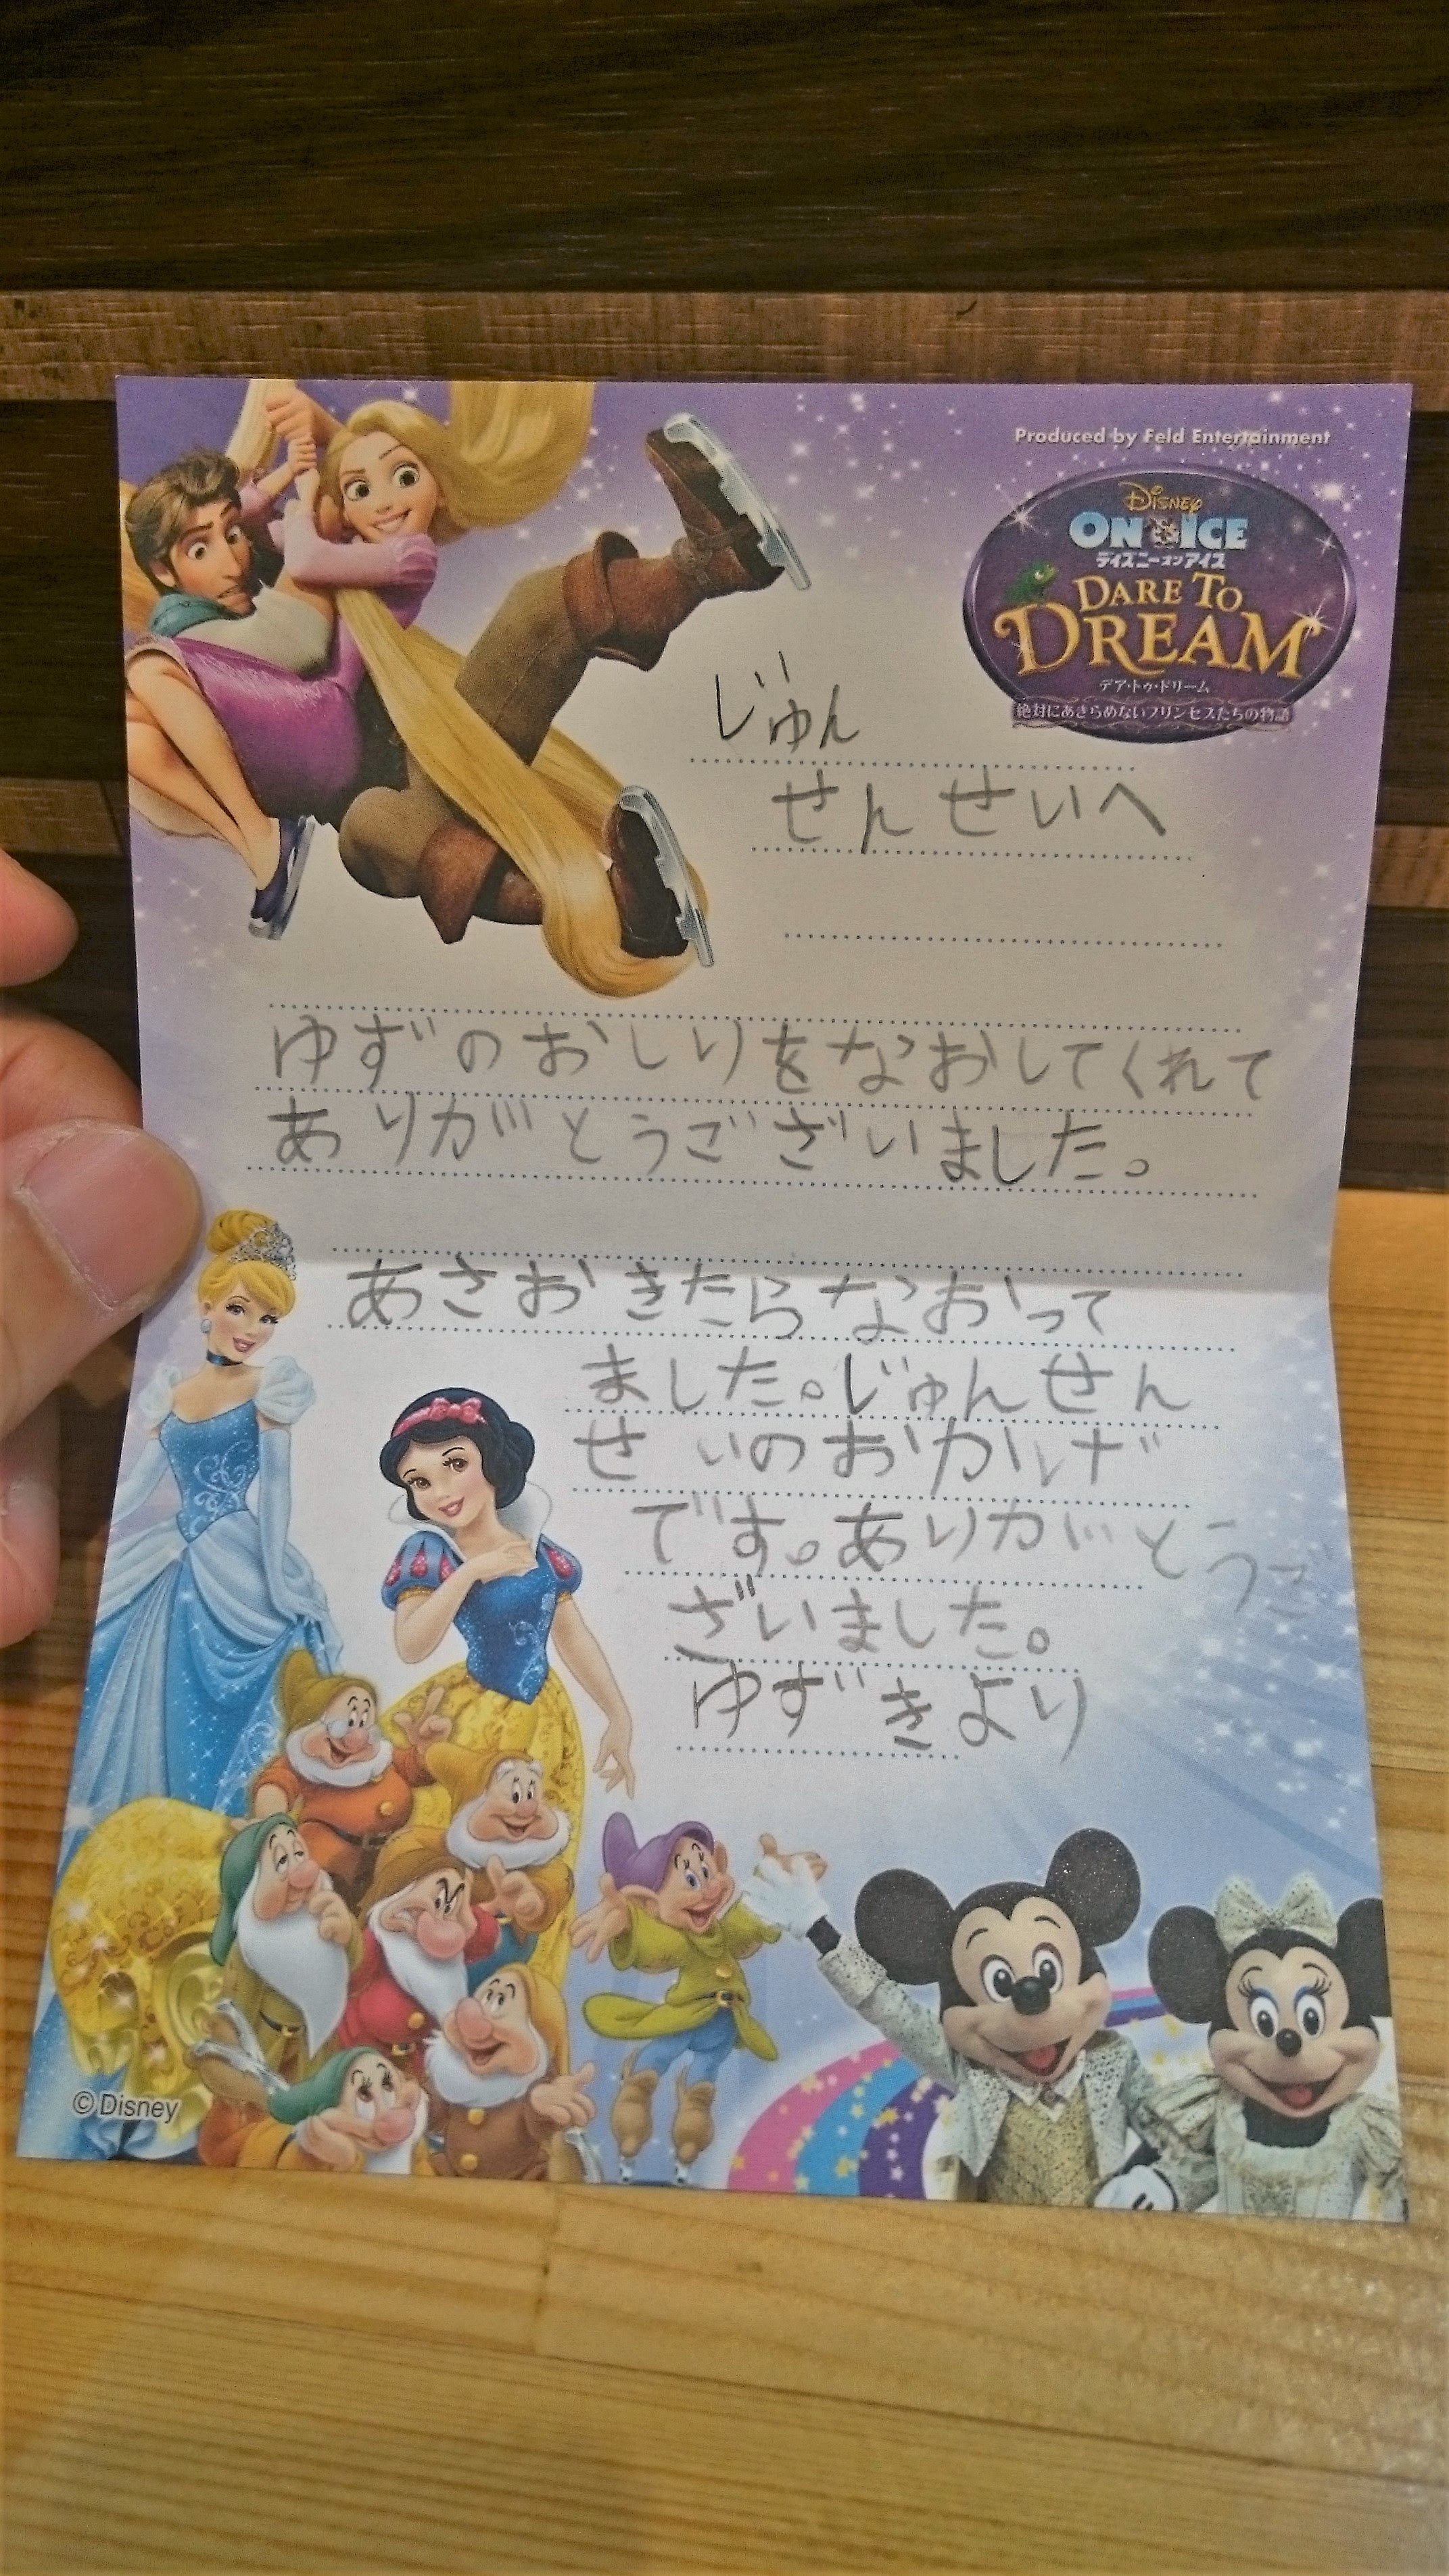 Produced by Feld Entertainment
Disney
ON ICE
ディズニーオンアイス
DARE TO
DREAM
デア・トゥ・ドリーム
絶対にあきらめないプリンセスたちの物語
じゅん
せんせいへ
ゆずのおしりをなおしてくれて
ありがとうございました。
あさおきたらなおって
ました。じゅんせん
せいのおかげ
です。ありがとうご
ざいました。
ゆずきより
© Disney